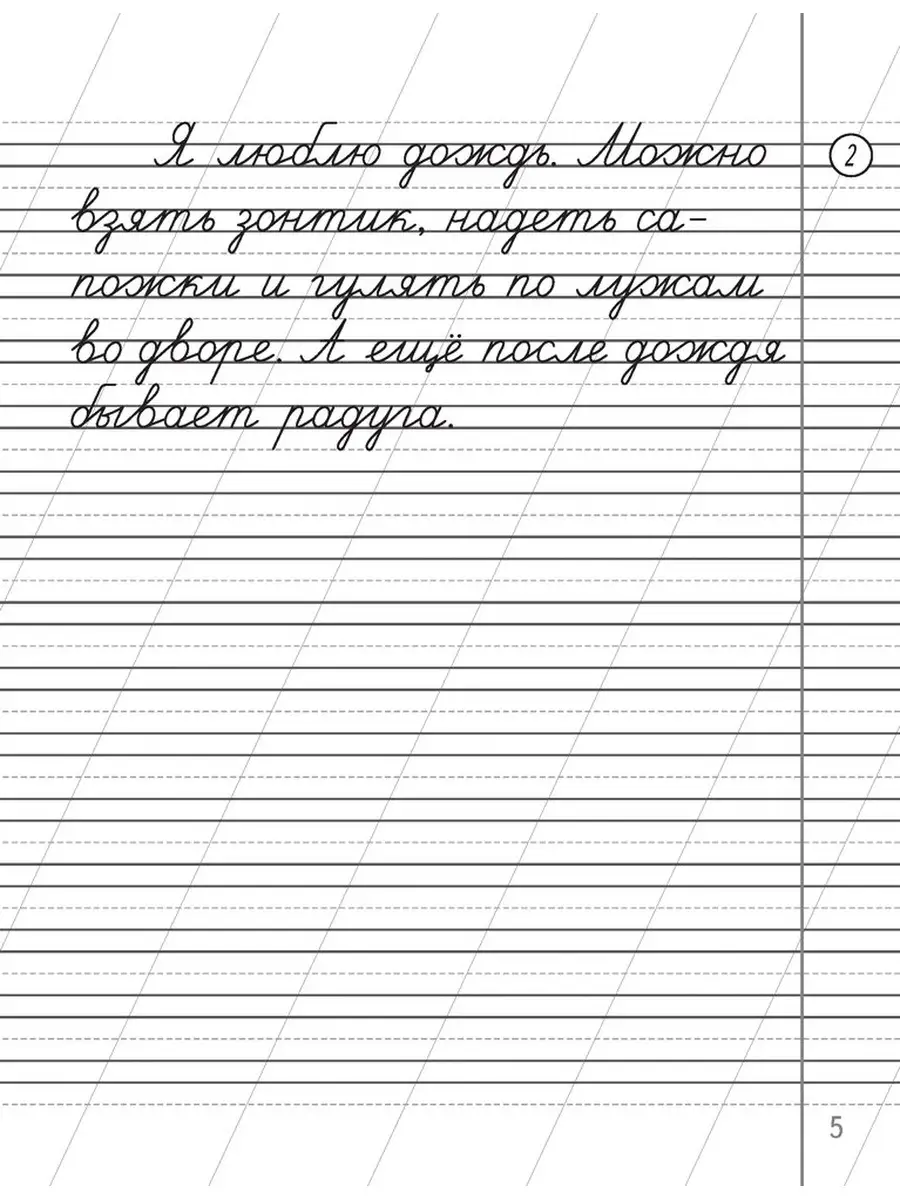 Я люблю дождь. Можно
2
взять зонтик, надеть са-
пожки и гулять по лужам
во дворе. А ещё после дождя
бывает радуга.
5